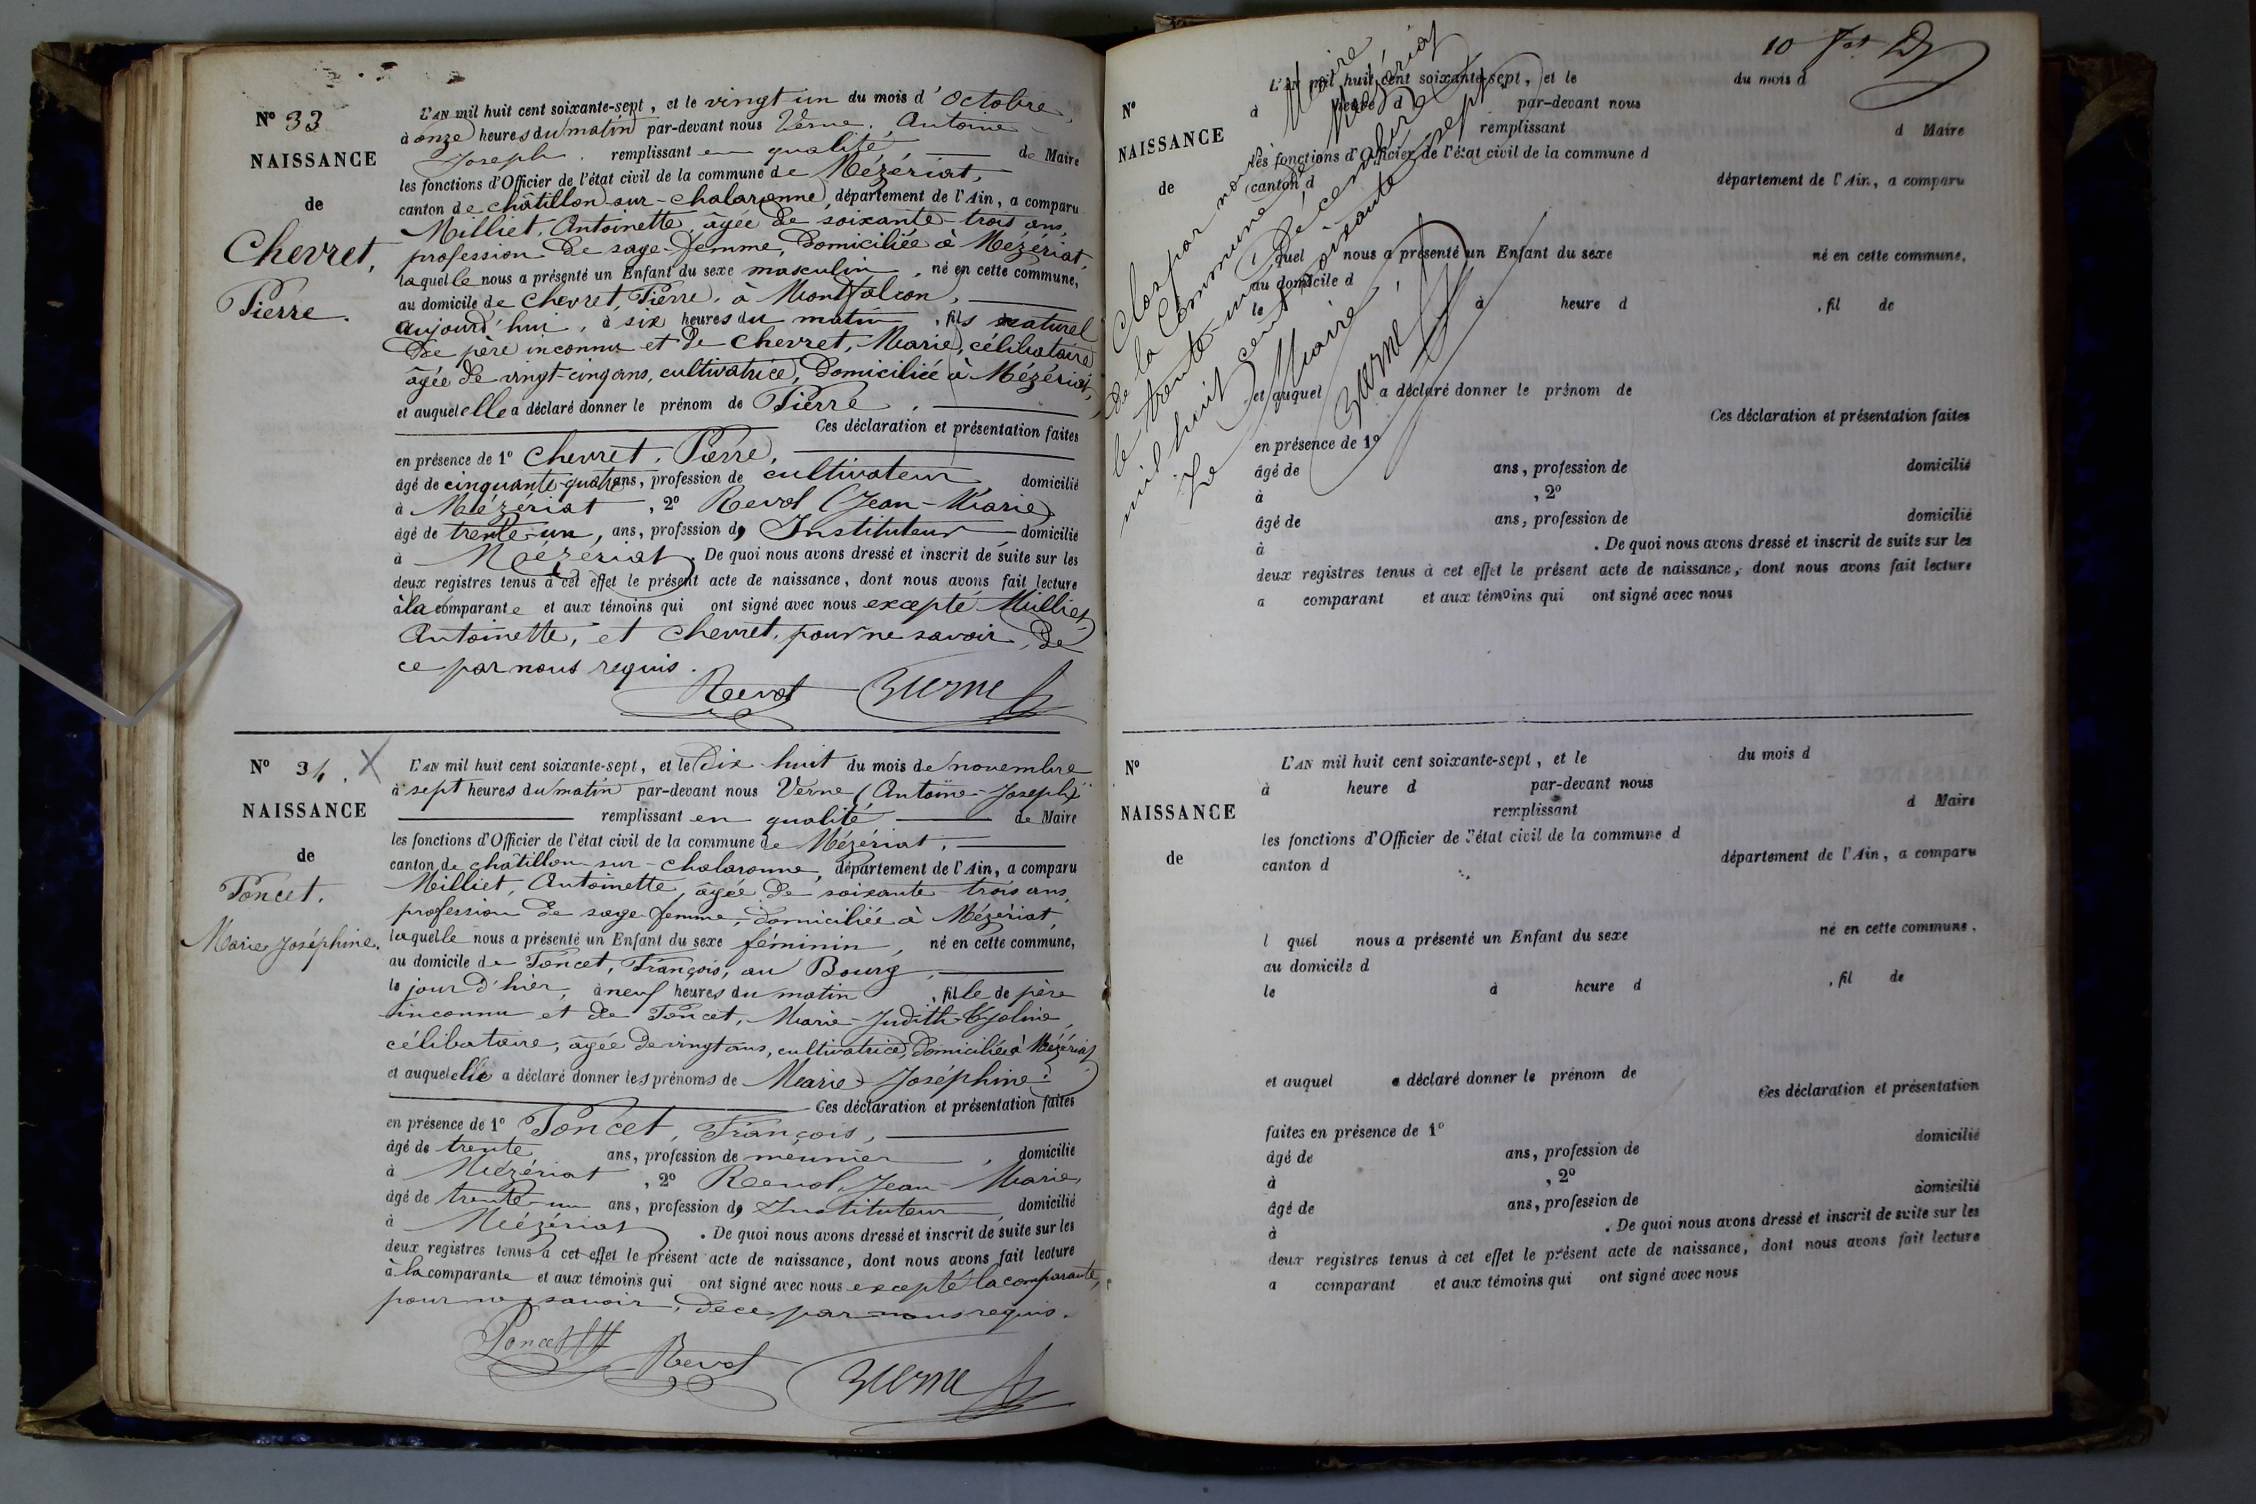 N° 33
NAISSANCE
de
Chevret,
Pierre.
L'AN mil huit cent soixante-sept, et le vingt un du mois d'Octobre,
à onze heures du matin par-devant nous Verne, Antoine
Joseph. remplissant en qualité de Maire
les fonctions d'Officier de l'état civil de la commune de Mézériat,
canton de châtillon-sur-chalaronne, département de l'Ain, a comparu
Milliet, Antoinette, âgée de soixante-trois ans,
profession de sage-femme, domiciliée à Mézériat,
laquelle nous a présenté un Enfant du sexe masculin, né en cette commune,
au domicile de Chevret, Pierre, à Montfalcon,
aujourd'hui, à six heures du matin, fils naturel
De père inconnu et de Chevret, Marie, célibataire
âgée de vingt-cinq ans, cultivatrice, domiciliée à Mézériat,
et auquel elle a déclaré donner le prénom de Pierre.
Ces déclaration et présentation faites
en présence de 1° Chevret, Pierre,
âgé de cinquante-quatre ans, profession de cultivateur domicilié
à Mézériat, 2° Revol (Jean-Marie)
âgé de trente-un, ans, profession d, Instituteur domicilié
à Mézériat. De quoi nous avons dressé et inscrit de suite sur les
deux registres tenus à cet effet le présent acte de naissance, dont nous avons fait lecture
à la comparante et aux témoins qui ont signé avec nous excepté Milliet,
Antoinette, et Chevret, pour ne savoir, De
ce par nous requis.
Revol Verne
N° 34. X
NAISSANCE
de
Poncet.
Marie Joséphine.
L'AN mil huit cent soixante-sept, et le Dix huit du mois de novembre
à sept heures du matin par-devant nous Verne (Antoine-Joseph)
remplissant en qualité de Maire
les fonctions d'Officier de l'état civil de la commune de Mézériat,
canton de châtillon-sur-chalaronne, département de l'Ain, a comparu
Milliet, Antoinette, âgée de soixante trois ans,
profession de sage-femme, domiciliée à Mézériat,
laquelle nous a présenté un Enfant du sexe féminin, né en cette commune,
au domicile de Poncet, François, au Bourg,
le jour d'hier, à neuf heures du matin, fille de père
inconnu et de Poncet, Marie-Judith
célibataire, âgée de vingt ans, cultivatrice, domiciliée à Mézériat
et auquel elle a déclaré donner les prénoms de Marie Joséphine.
Ces déclaration et présentation faites
en présence de 1° Poncet, François,
âgé de trente ans, profession de meunier, domicilié
à Mézériat, 2° Revol, Jean-Marie,
âgé de trente-un ans, profession d, Instituteur domicilié
à Mézériat. De quoi nous avons dressé et inscrit de suite sur les
deux registres tenus à cet effet le présent acte de naissance, dont nous avons fait lecture
à la comparante et aux témoins qui ont signé avec nous excepté la comparante,
pour ne savoir, de ce par nous requis.
Poncet Revol Verne
10
Clos par nous Maire
de la Commune de Mézériat
le trente-un Décembre
mil huit cent soixante sept.
Le Maire,
Verne
N°
NAISSANCE
de
L'AN mil huit cent soixante-sept, et le du mois d
à heure d par-devant nous
remplissant d Maire
les fonctions d'Officier de l'état civil de la commune d
canton d département de l'Ain, a comparu
quel nous a présenté un Enfant du sexe né en cette commune,
au domicile d
le à heure d , fil de
et auquel a déclaré donner le prénom de
Ces déclaration et présentation faites
en présence de 1°
âgé de ans, profession de domicilié
à , 2°
âgé de ans, profession de domicilié
à . De quoi nous avons dressé et inscrit de suite sur les
deux registres tenus à cet effet le présent acte de naissance, dont nous avons fait lecture
a comparant et aux témoins qui ont signé avec nous
N°
NAISSANCE
de
L'AN mil huit cent soixante-sept, et le du mois d
à heure d par-devant nous
remplissant d Maire
les fonctions d'Officier de l'état civil de la commune d
canton d département de l'Ain, a comparu
l quel nous a présenté un Enfant du sexe né en cette commune,
au domicile d
le à heure d , fil de
et auquel a déclaré donner le prénom de
Ces déclaration et présentation
faites en présence de 1°
âgé de ans, profession de domicilié
à , 2°
âgé de ans, profession de domicilié
à . De quoi nous avons dressé et inscrit de suite sur les
deux registres tenus à cet effet le présent acte de naissance, dont nous avons fait lecture
a comparant et aux témoins qui ont signé avec nous